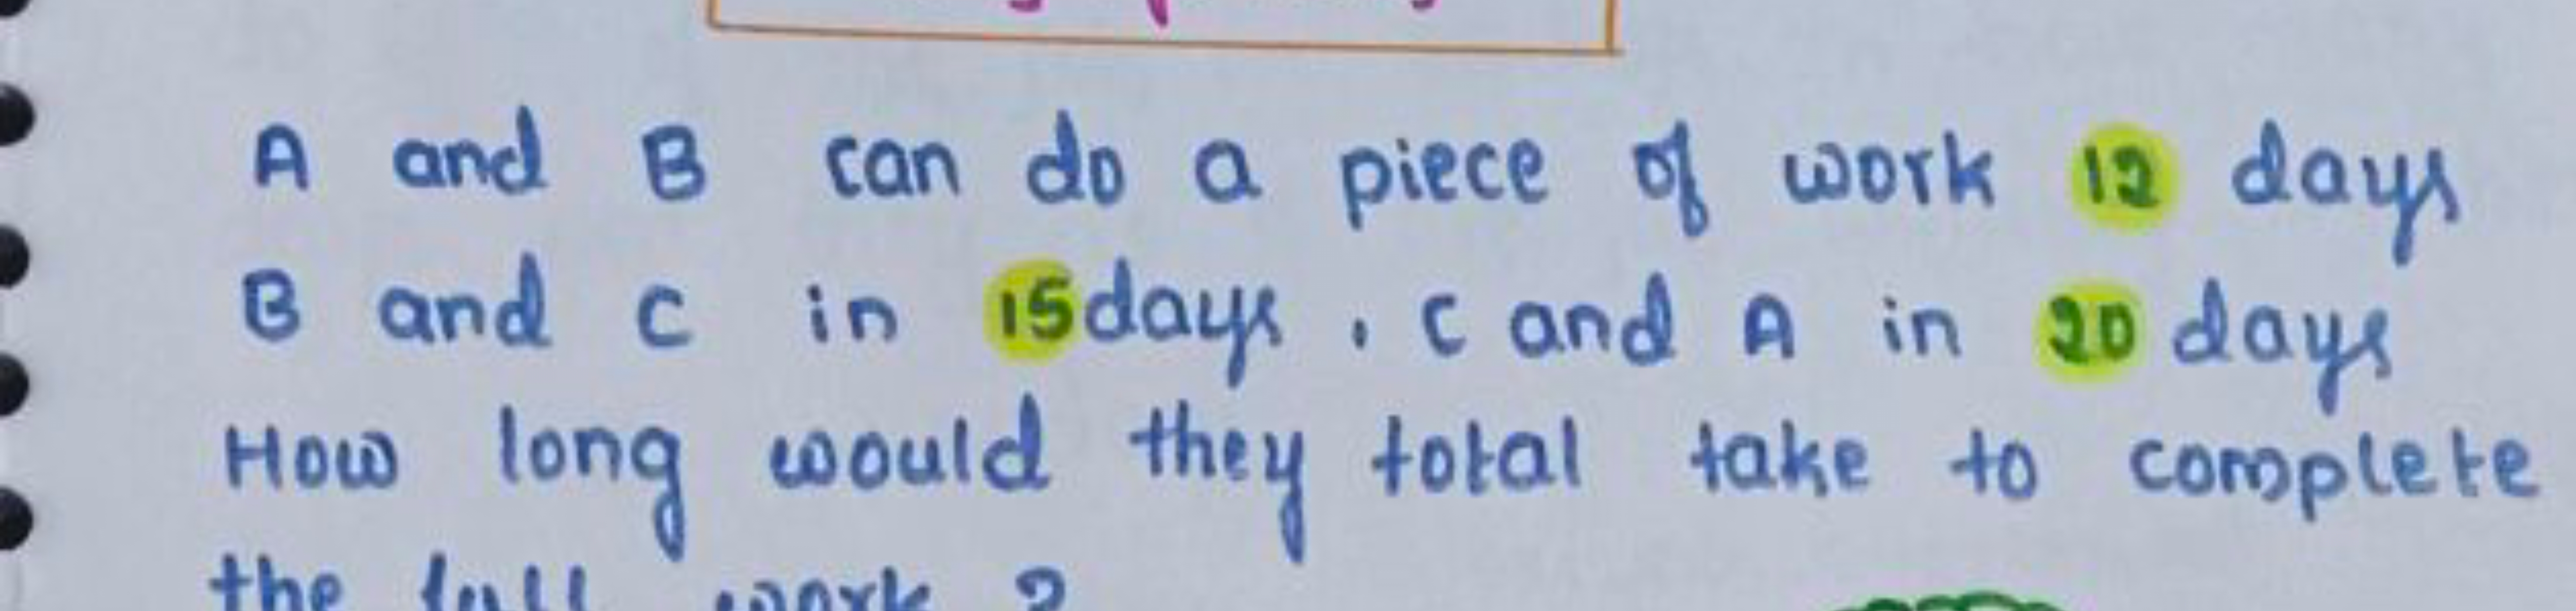 A and B can do a piece of work 12 days
B and C in 15 days , C and A in 20 days
How long would they total take to complete
the full work ?